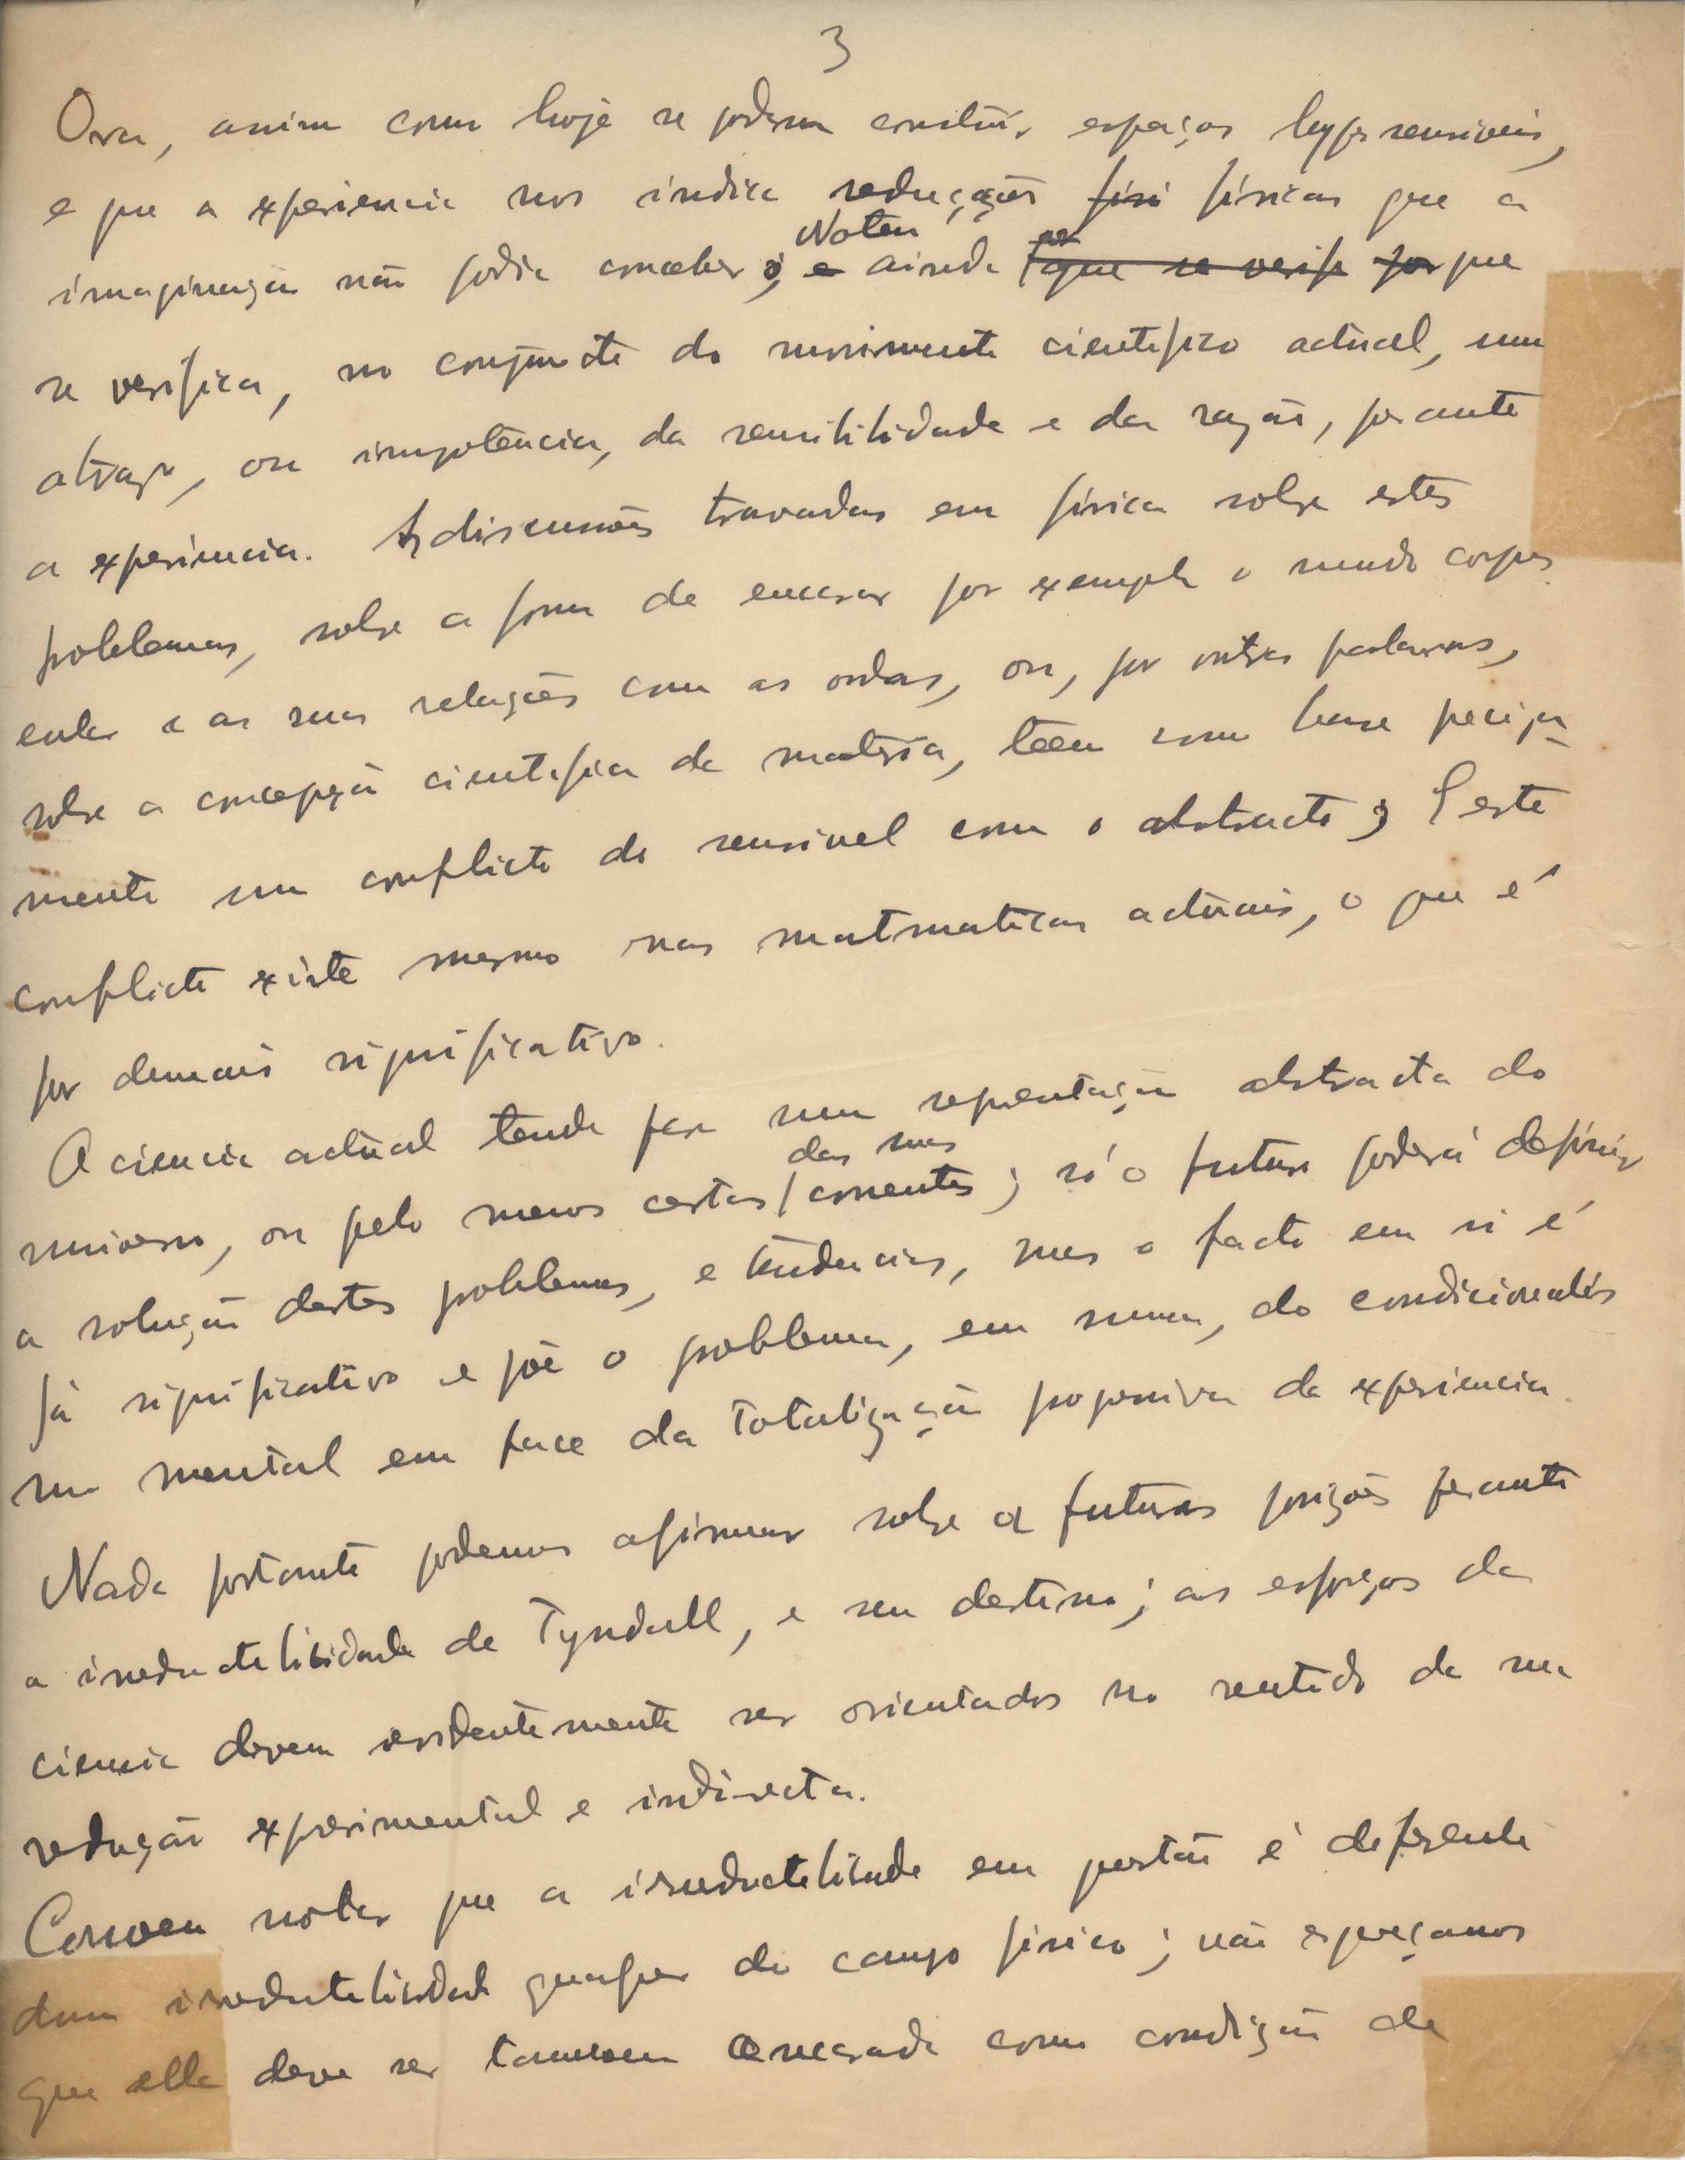 3
Ora, assim como hoje se podem construir espaços hypersensiveis,
e que a experiencia nos indica reducções fisi fisicas que a
imaginação não podia conceber; e Notem ainda que se verifi por que
se verifica, no conjuncto do movimento cientifico actual, um
atrazo, ou impotencia, da sensibilidade e da razão, perante
a experiencia. As discussões travadas em fisica sobre estes
problemas, sobre a forma de encarar por exemplo o mundo corpus
cular e as suas relações com as ondas, ou, por outras palavras,
sobre a concepção cientifica da materia, teem como base precisa
mente um conflicto do sensivel com o abstracto; e este
conflicto existe mesmo nas matematicas actuais, o que é
por demais significativo.
A ciencia actual tende para uma representação abstracta do
universo, ou pelo menos certas das suas correntes; só o futuro poderá definir
a solução destes problemas, e tendencias, mas o facto em si é
já significativo e põe o problema, em suma, do condicionalis
mo mental em face da totalização progressiva da experiencia.
Nada portanto podemos afirmar sobre as futuras posições perante
a irreductibilidade de Tyndall, e seu destino; os esforços da
ciencia devem evidentemente ser orientados no sentido da sua
redução experimental e indirecta.
Convem notar que a irreductibilidade em questão é diferente
duma irreductibilidade qualquer do campo fisico; não esqueçamos
que ella deve ser tambem encarada como condição de